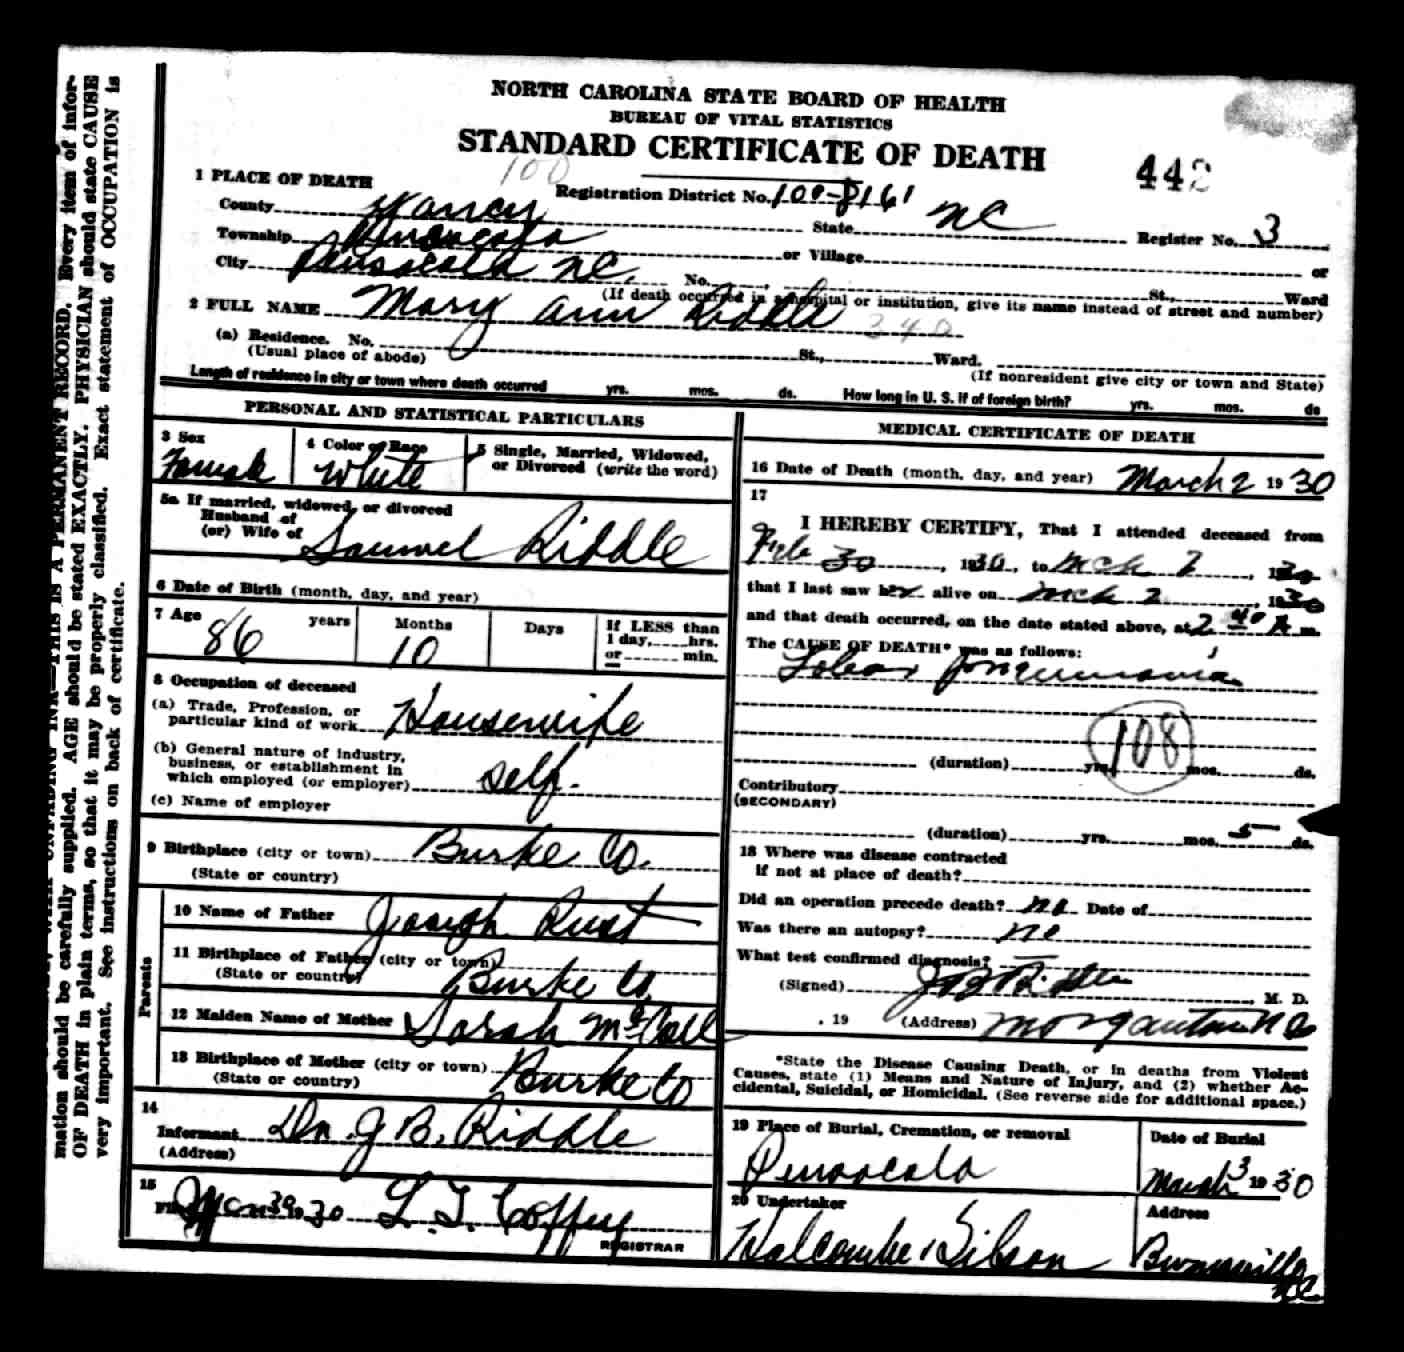 NORTH CAROLINA STATE BOARD OF HEALTH
BUREAU OF VITAL STATISTICS
STANDARD CERTIFICATE OF DEATH
442
100
1 PLACE OF DEATH
Registration District No. 100-8161
County Yancey State NC Register No. 3
Township Pensacola or Village or
City Pensacola NC. No. , St., Ward
(If death occurred in a hospital or institution, give its name instead of street and number)
2 FULL NAME Mary Ann Riddle 340
(a) Residence. No. St., Ward.
(Usual place of abode) (If nonresident give city or town and State)
Length of residence in city or town where death occurred yrs. mos. ds. How long in U. S. if of foreign birth? yrs. mos. ds
PERSONAL AND STATISTICAL PARTICULARS
3 Sex 4 Color or Race 5 Single, Married, Widowed,
or Divorced (write the word)
Female White
5a If married, widowed, or divorced
Husband of
(or) Wife of Samuel Riddle
6 Date of Birth (month, day, and year)
7 Age years Months Days If LESS than
1 day, hrs.
or min.
86 10
8 Occupation of deceased
(a) Trade, Profession, or
particular kind of work Housewife
(b) General nature of industry,
business, or establishment in
which employed (or employer) self.
(c) Name of employer
9 Birthplace (city or town) Burke Co.
(State or country)
Parents
10 Name of Father Joseph Rust
11 Birthplace of Father (city or town)
(State or country) Burke Co.
12 Maiden Name of Mother Sarah McCall
13 Birthplace of Mother (city or town)
(State or country) Burke Co
14
Informant Dr. J B. Riddle
(Address)
15
30 L. T. Coffey
REGISTRAR
MEDICAL CERTIFICATE OF DEATH
16 Date of Death (month, day, and year) March 2 1930
17
I HEREBY CERTIFY, That I attended deceased from
Feb 30, 1930, to Mch 2, 1930
that I last saw her alive on Mch 2, 1930
and that death occurred, on the date stated above, at 2 40 A m.
The CAUSE OF DEATH* was as follows:
Lobar pneumonia
108
(duration) yrs. mos. ds.
Contributory
(SECONDARY)
(duration) yrs. mos. 5 ds.
18 Where was disease contracted
if not at place of death?
Did an operation precede death? no Date of
Was there an autopsy? no
What test confirmed diagnosis?
(Signed) J B Riddle, M. D.
, 19 (Address) Morganton N C
*State the Disease Causing Death, or in deaths from Violent
Causes, state (1) Means and Nature of Injury, and (2) whether Ac-
cidental, Suicidal, or Homicidal. (See reverse side for additional space.)
19 Place of Burial, Cremation, or removal Date of Burial
Pensacola March 3 1930
20 Undertaker Address
Holcombe, Gibson Burnsville
NC
mation should be carefully supplied. AGE should be stated EXACTLY. PHYSICIAN should state CAUSE
OF DEATH in plain terms, so that it may be properly classified. Exact statement of OCCUPATION is
very important. See instructions on back of certificate.
THIS IS A PERMANENT RECORD. Every item of infor-